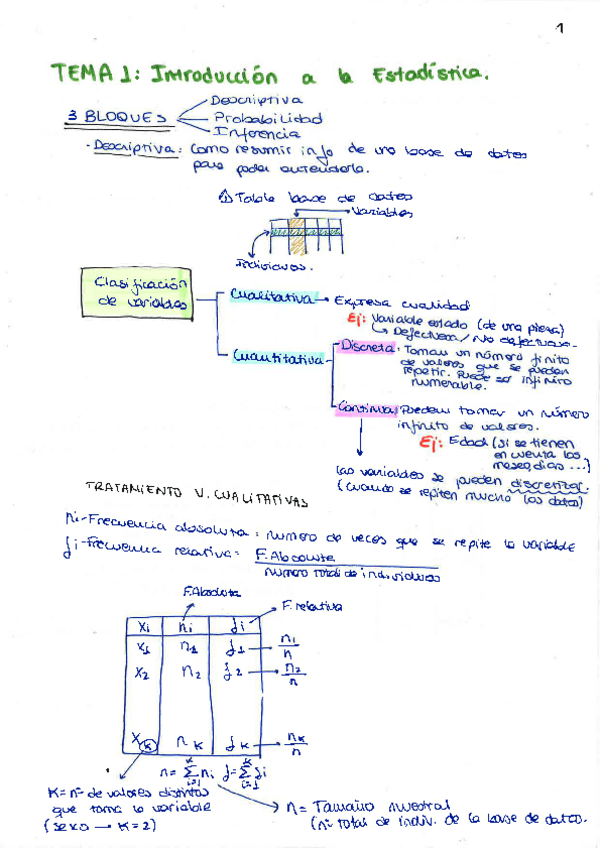 1
TEMA 1: Introducción a la Estadística.
3 BLOQUES
Descriptiva
Probabilidad
Inferencia
- Descriptiva: Como resumir info de una base de datos
para poder entenderla.
① Tabla base de datos
Variables
Individuos.
Clasificación
de variables
Cualitativa → Expresa cualidad
Ej: Variable estado (de una pieza)
↳ Defectuosa / No defectuosa.
Cuantitativa
Discreta: Toman un número finito
de valores que se pueden
repetir. Puede ser infinito
numerable.
Continua: Pueden tomar un número
infinito de valores.
Ej: Edad (si se tienen
en cuenta los
meses, días ...)
Las variables se pueden discretizar.
(cuando se repiten mucho los datos)
TRATAMIENTO V. CUALITATIVAS
ni - Frecuencia absoluta: número de veces que se repite la variable
fi - Frecuencia relativa: F. Absoluta
número total de individuos
F. Absoluta
F. relativa
xi ni fi
x1 n1 f1 → n1/n
x2 n2 f2 → n2/n
xk nk fk → nk/n
n = Σ ni f = Σ fi
K = nº de valores distintos
que toma la variable
(sexo → K = 2)
n = Tamaño muestral
(nº total de indiv. de la base de datos.